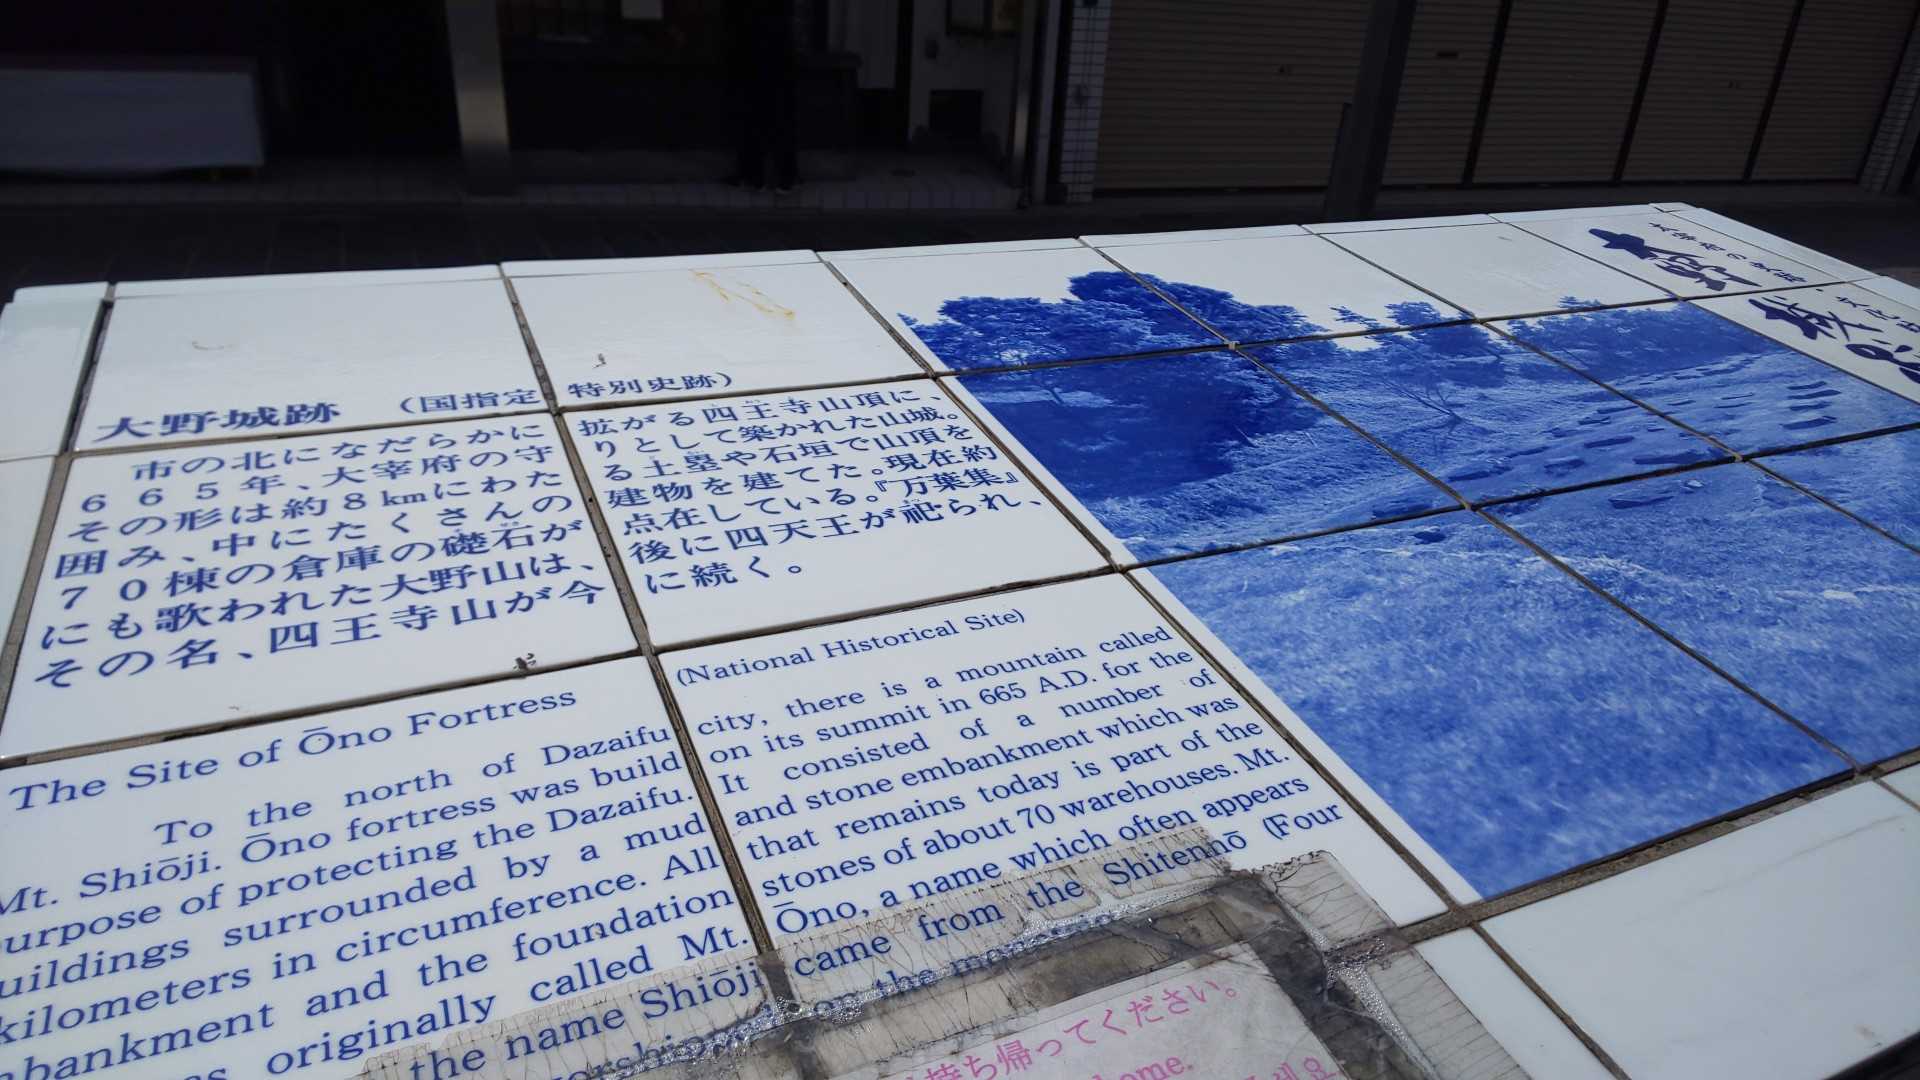 大野城跡 (国指定特別史跡)
市の北になだらかに拡がる四王寺山頂に、
665年、大宰府の守りとして築かれた山城。
その形は約8kmにわたる土塁や石垣で山頂を
囲み、中にたくさんの建物を建てた。現在約
70棟の倉庫の礎石が点在している。『万葉集』
にも歌われた大野山は、後に四天王が祀られ、
その名、四王寺山が今に続く。
The Site of Ōno Fortress (National Historical Site)
To the north of Dazaifu city, there is a mountain called
Mt. Shiōji. Ōno fortress was build on its summit in 665 A.D. for the
purpose of protecting the Dazaifu. It consisted of a number of
buildings surrounded by a mud and stone embankment which was
kilometers in circumference. All that remains today is part of the
embankment and the foundation stones of about 70 warehouses. Mt.
originally called Mt. Ōno, a name which often appears
the name Shiōji came from the Shitennō (Four
on the
大野城跡
持ち帰ってください。
home.
세요